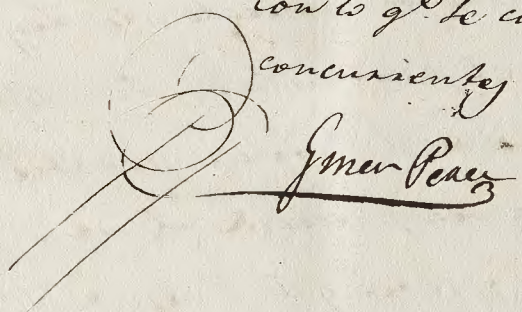 con lo q.e se c
concurrentes
Gmer Perez